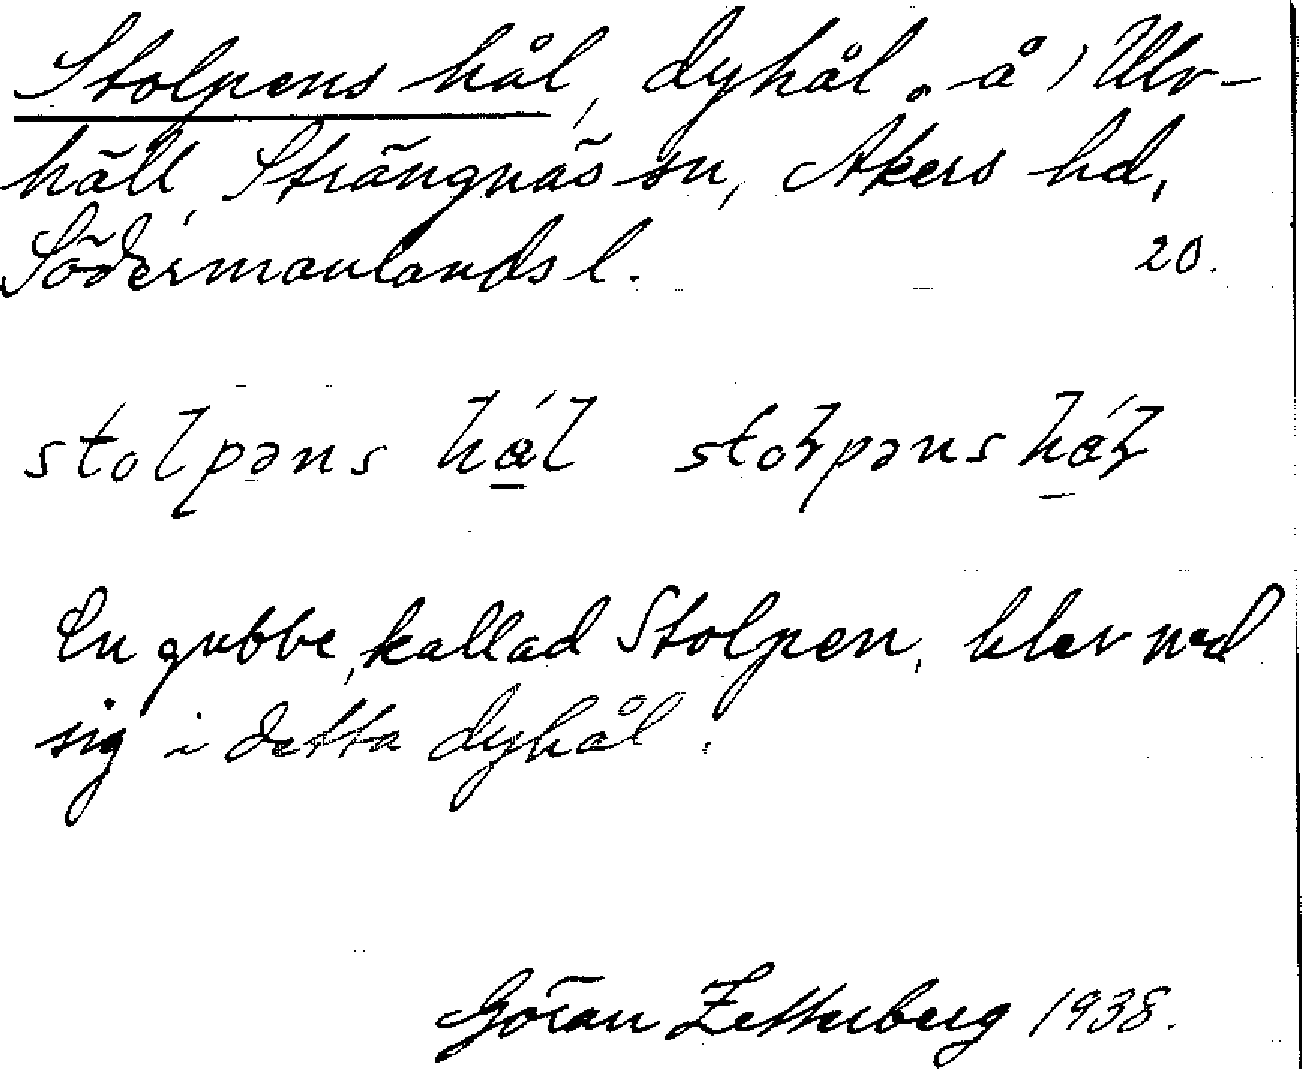 Stolpens hål, dyhål å Ulv-
häll, Strängnäs sn, Åkers hd,
Södermanlands l. 20.
stolpəns hál stoɽpəns háɽ
En gubbe, kallad Stolpen, blev ned
sig i detta dyhål.
Göran Zetterberg 1938.